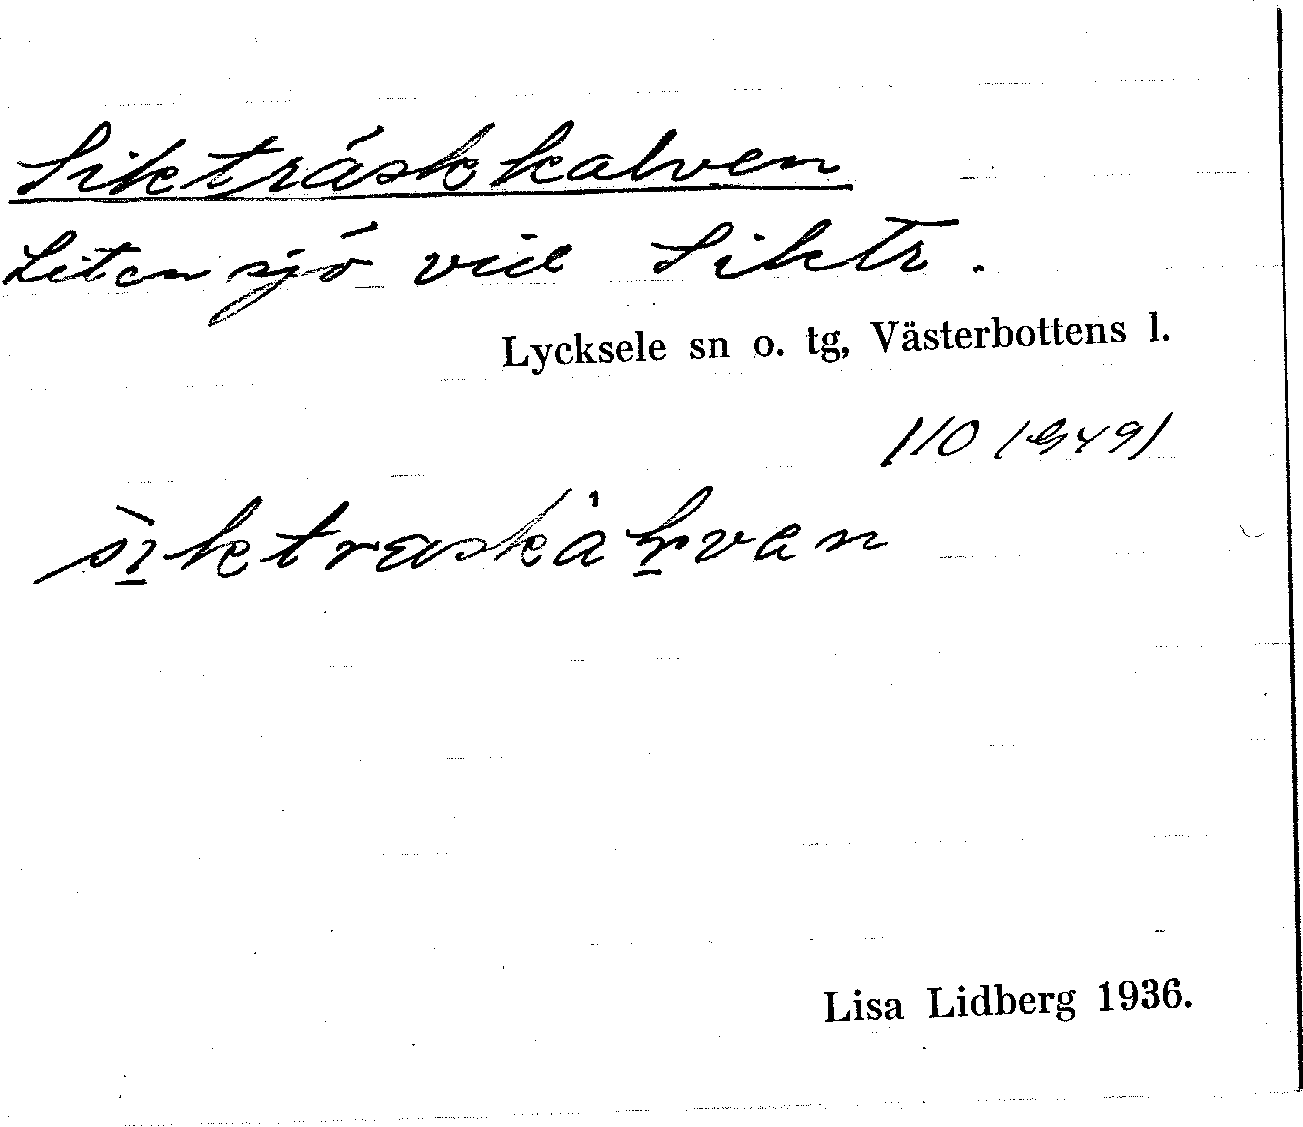 Sikträskkalven
Liten sjö vid Siktr.
Lycksele sn o. tg, Västerbottens l.
110 (949)
Lisa Lidberg 1936.